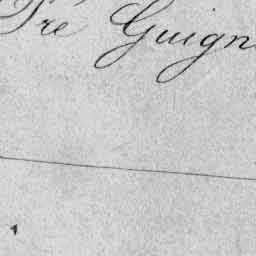 Pré Guign